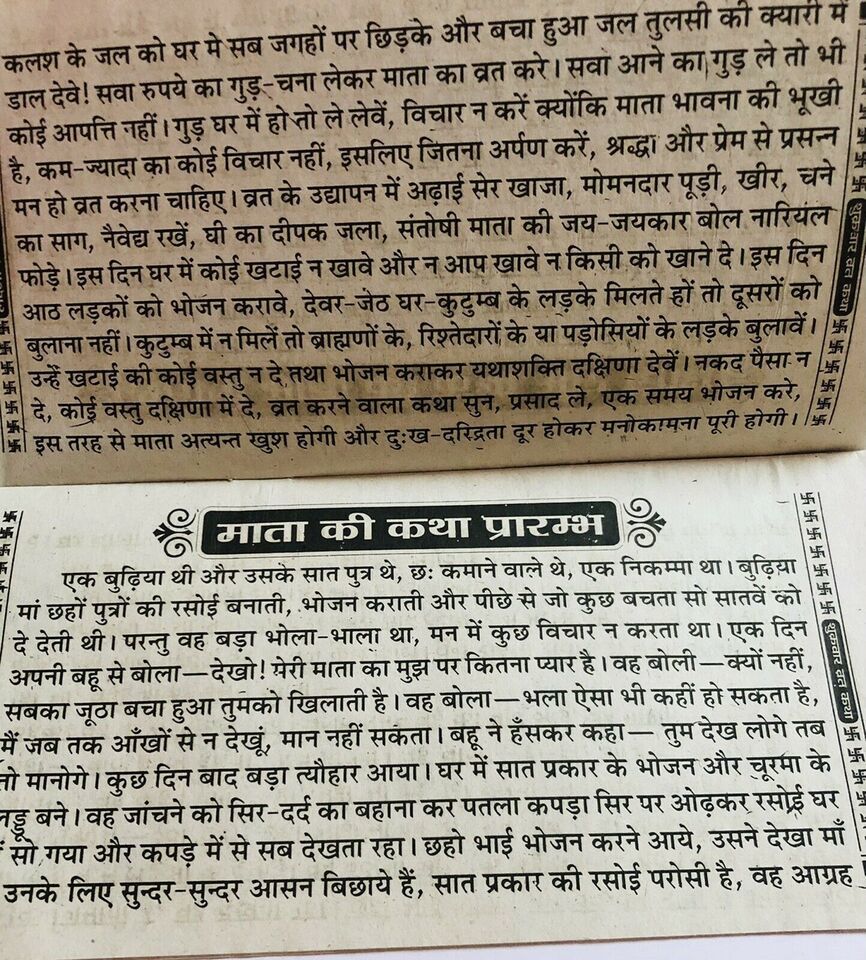 कलश के जल को घर मे सब जगहों पर छिड़के और बचा हुआ जल तुलसी की क्यारी में
डाल देवे! सवा रुपये का गुड़-चना लेकर माता का व्रत करे। सवा आने का गुड़ ले तो भी
कोई आपत्ति नहीं। गुड़ घर में हो तो ले लेवें, विचार न करें क्योंकि माता भावना की भूखी
है, कम-ज्यादा का कोई विचार नहीं, इसलिए जितना अर्पण करें, श्रद्धा और प्रेम से प्रसन्न
मन हो व्रत करना चाहिए। व्रत के उद्यापन में अढ़ाई सेर खाजा, मोमनदार पूड़ी, खीर, चने
का साग, नैवेद्य रखें, घी का दीपक जला, संतोषी माता की जय-जयकार बोल नारियल
फोड़े। इस दिन घर में कोई खटाई न खावे और न आप खावे न किसी को खाने दे। इस दिन
आठ लड़कों को भोजन करावे, देवर-जेठ घर-कुटुम्ब के लड़के मिलते हों तो दूसरों को
बुलाना नहीं। कुटुम्ब में न मिलें तो ब्राह्मणों के, रिश्तेदारों के या पड़ोसियों के लड़के बुलावें।
उन्हें खटाई की कोई वस्तु न दे तथा भोजन कराकर यथाशक्ति दक्षिणा देवें। नकद पैसा न
दे, कोई वस्तु दक्षिणा में दे, व्रत करने वाला कथा सुन, प्रसाद ले, एक समय भोजन करे,
इस तरह से माता अत्यन्त खुश होगी और दुःख-दरिद्रता दूर होकर मनोकामना पूरी होगी।
शुक्रवार व्रत कथा
माता की कथा प्रारम्भ
एक बुढ़िया थी और उसके सात पुत्र थे, छः कमाने वाले थे, एक निकम्मा था। बुढ़िया
मां छहों पुत्रों की रसोई बनाती, भोजन कराती और पीछे से जो कुछ बचता सो सातवें को
दे देती थी। परन्तु वह बड़ा भोला-भाला था, मन में कुछ विचार न करता था। एक दिन
अपनी बहू से बोला—देखो! मेरी माता का मुझ पर कितना प्यार है। वह बोली—क्यों नहीं,
सबका जूठा बचा हुआ तुमको खिलाती है। वह बोला—भला ऐसा भी कहीं हो सकता है,
मैं जब तक आँखों से न देखूं, मान नहीं सकता। बहू ने हँसकर कहा— तुम देख लोगे तब
तो मानोगे। कुछ दिन बाद बड़ा त्यौहार आया। घर में सात प्रकार के भोजन और चूरमा के
लड्डू बने। वह जांचने को सिर-दर्द का बहाना कर पतला कपड़ा सिर पर ओढ़कर रसोई घर
सो गया और कपड़े में से सब देखता रहा। छहो भाई भोजन करने आये, उसने देखा माँ
उनके लिए सुन्दर-सुन्दर आसन बिछाये हैं, सात प्रकार की रसोई परोसी है, वह आग्रह
शुक्रवार व्रत कथा